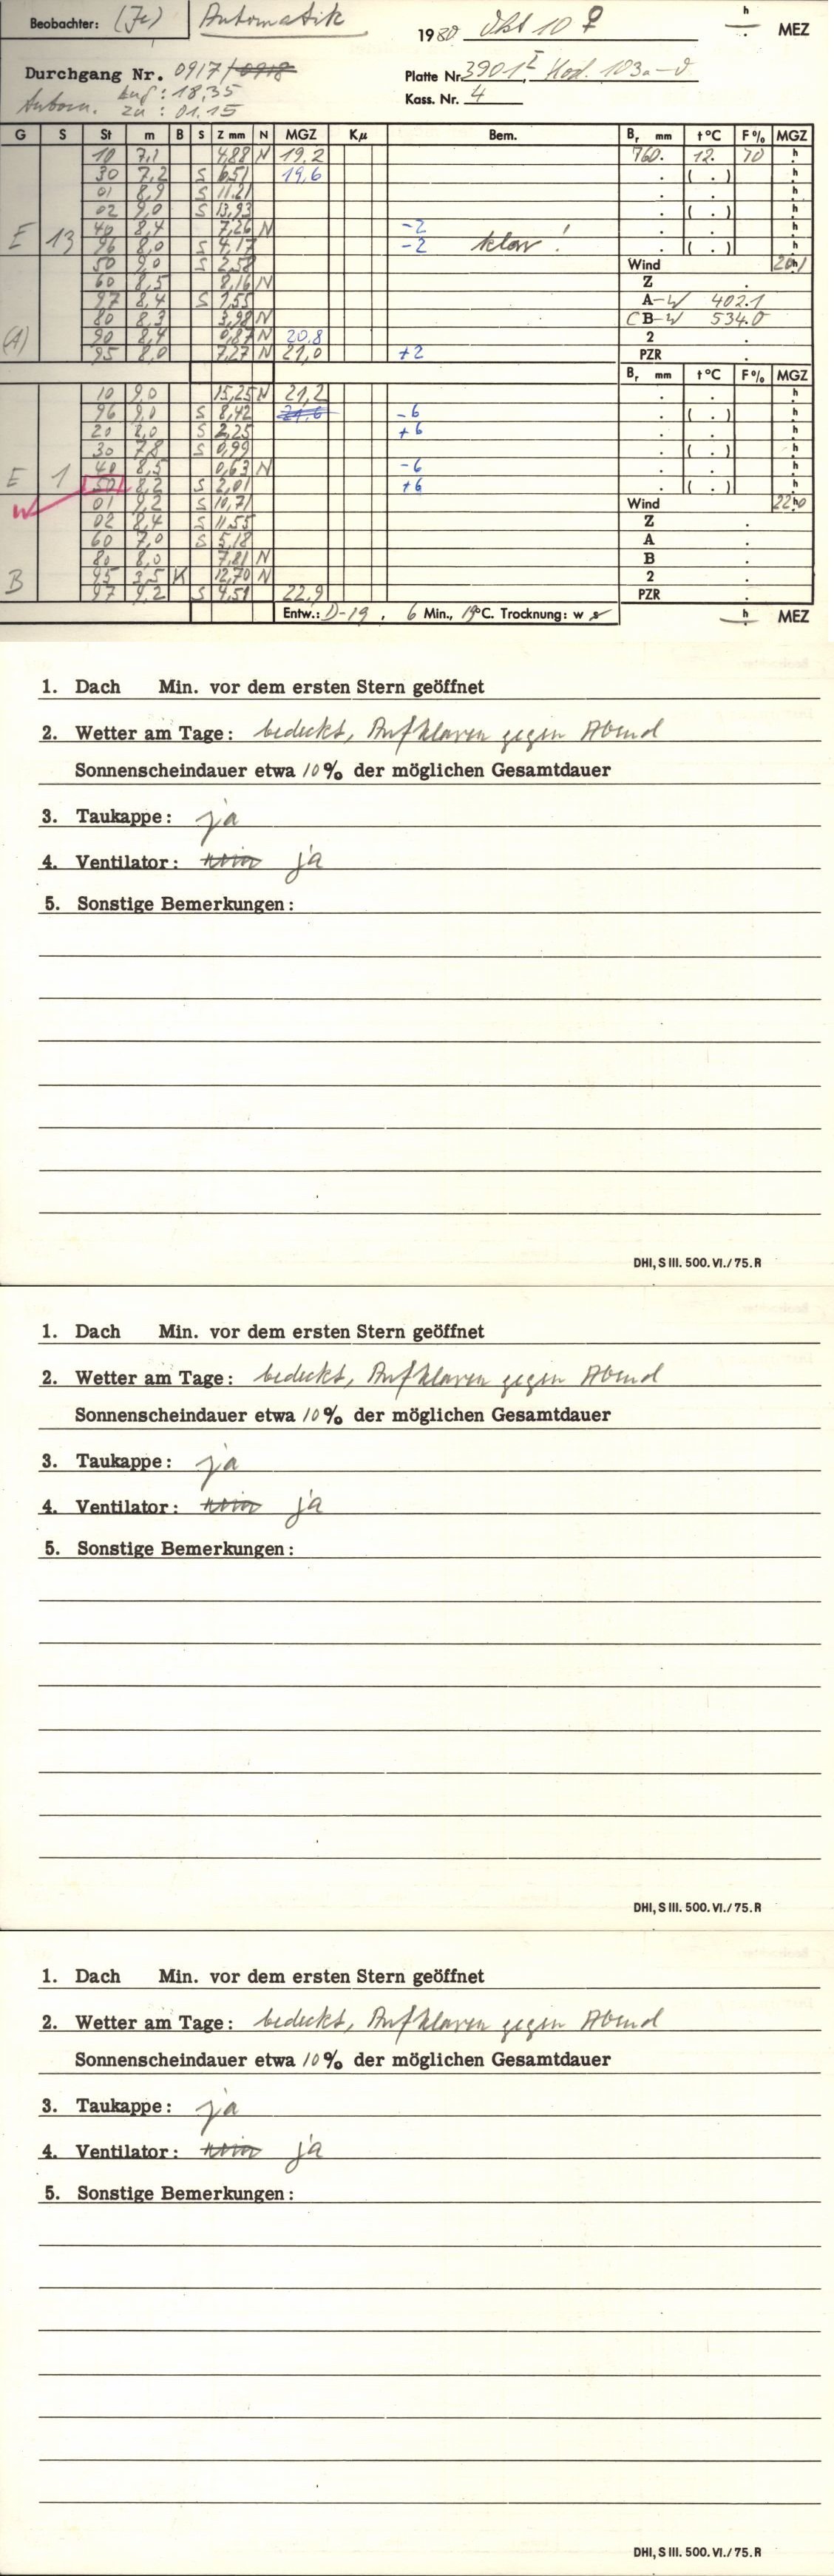 Beobachter: (Je) Automatik 1980 Okt 10 ♀ h MEZ
Durchgang Nr. 0917/0918 Platte Nr. 3901 I, Kod. 103a-J
Autom. auf: 18.35 Kass. Nr. 4
zu: 01.15
G S St m B S Z mm N MGZ Kμ Bem. Br mm t°C F% MGZ
10 7,1 4,88 N 19,2 760. 12. 70 h
30 7,2 S 6,51 19,6 . ( . ) h
01 8,9 S 11,21 . . h
02 9,0 S 13,93 . ( . ) h
40 8,4 7,26 N -2 . . h
E 13 96 8,0 S 4,17 -2 klar! . ( . ) h
50 9,0 S 2,58 Wind 20h1
60 8,5 8,16 N Z .
97 8,4 S 7,55 A-W 402.1
80 8,3 3,98 N CB-W 534.0
(A) 90 8,4 0,87 N 20,8 2 .
95 8,0 7,27 N 21,0 +2 PZR .
Br mm t°C F% MGZ
10 9,0 15,25 N 21,2 . . h
96 9,0 S 8,42 21,6 -6 . ( . ) h
20 8,0 S 2,25 +6 . . h
30 7,8 S 0,99 . ( . ) h
E 1 40 8,5 0,63 N -6 . . h
50 8,2 S 2,01 +6 . ( . ) h
W 01 9,2 S 10,71 Wind 22h0
02 8,4 S 11,55 Z .
60 7,0 S 5,18 A .
80 8,0 7,81 N B .
B 95 3,5 K 12,70 N 2 .
97 9,2 S 4,51 22,9 PZR .
Entw.: D-19, 6 Min., 19°C. Trocknung: w s h MEZ
1. Dach Min. vor dem ersten Stern geöffnet
2. Wetter am Tage: bedeckt, Aufklaren gegen Abend
Sonnenscheindauer etwa 10% der möglichen Gesamtdauer
3. Taukappe: ja
4. Ventilator: nein ja
5. Sonstige Bemerkungen:
DHI, S III. 500. VI./75. R
1. Dach Min. vor dem ersten Stern geöffnet
2. Wetter am Tage: bedeckt, Aufklaren gegen Abend
Sonnenscheindauer etwa 10% der möglichen Gesamtdauer
3. Taukappe: ja
4. Ventilator: nein ja
5. Sonstige Bemerkungen:
DHI, S III. 500. VI./75. R
1. Dach Min. vor dem ersten Stern geöffnet
2. Wetter am Tage: bedeckt, Aufklaren gegen Abend
Sonnenscheindauer etwa 10% der möglichen Gesamtdauer
3. Taukappe: ja
4. Ventilator: nein ja
5. Sonstige Bemerkungen:
DHI, S III. 500. VI./75. R